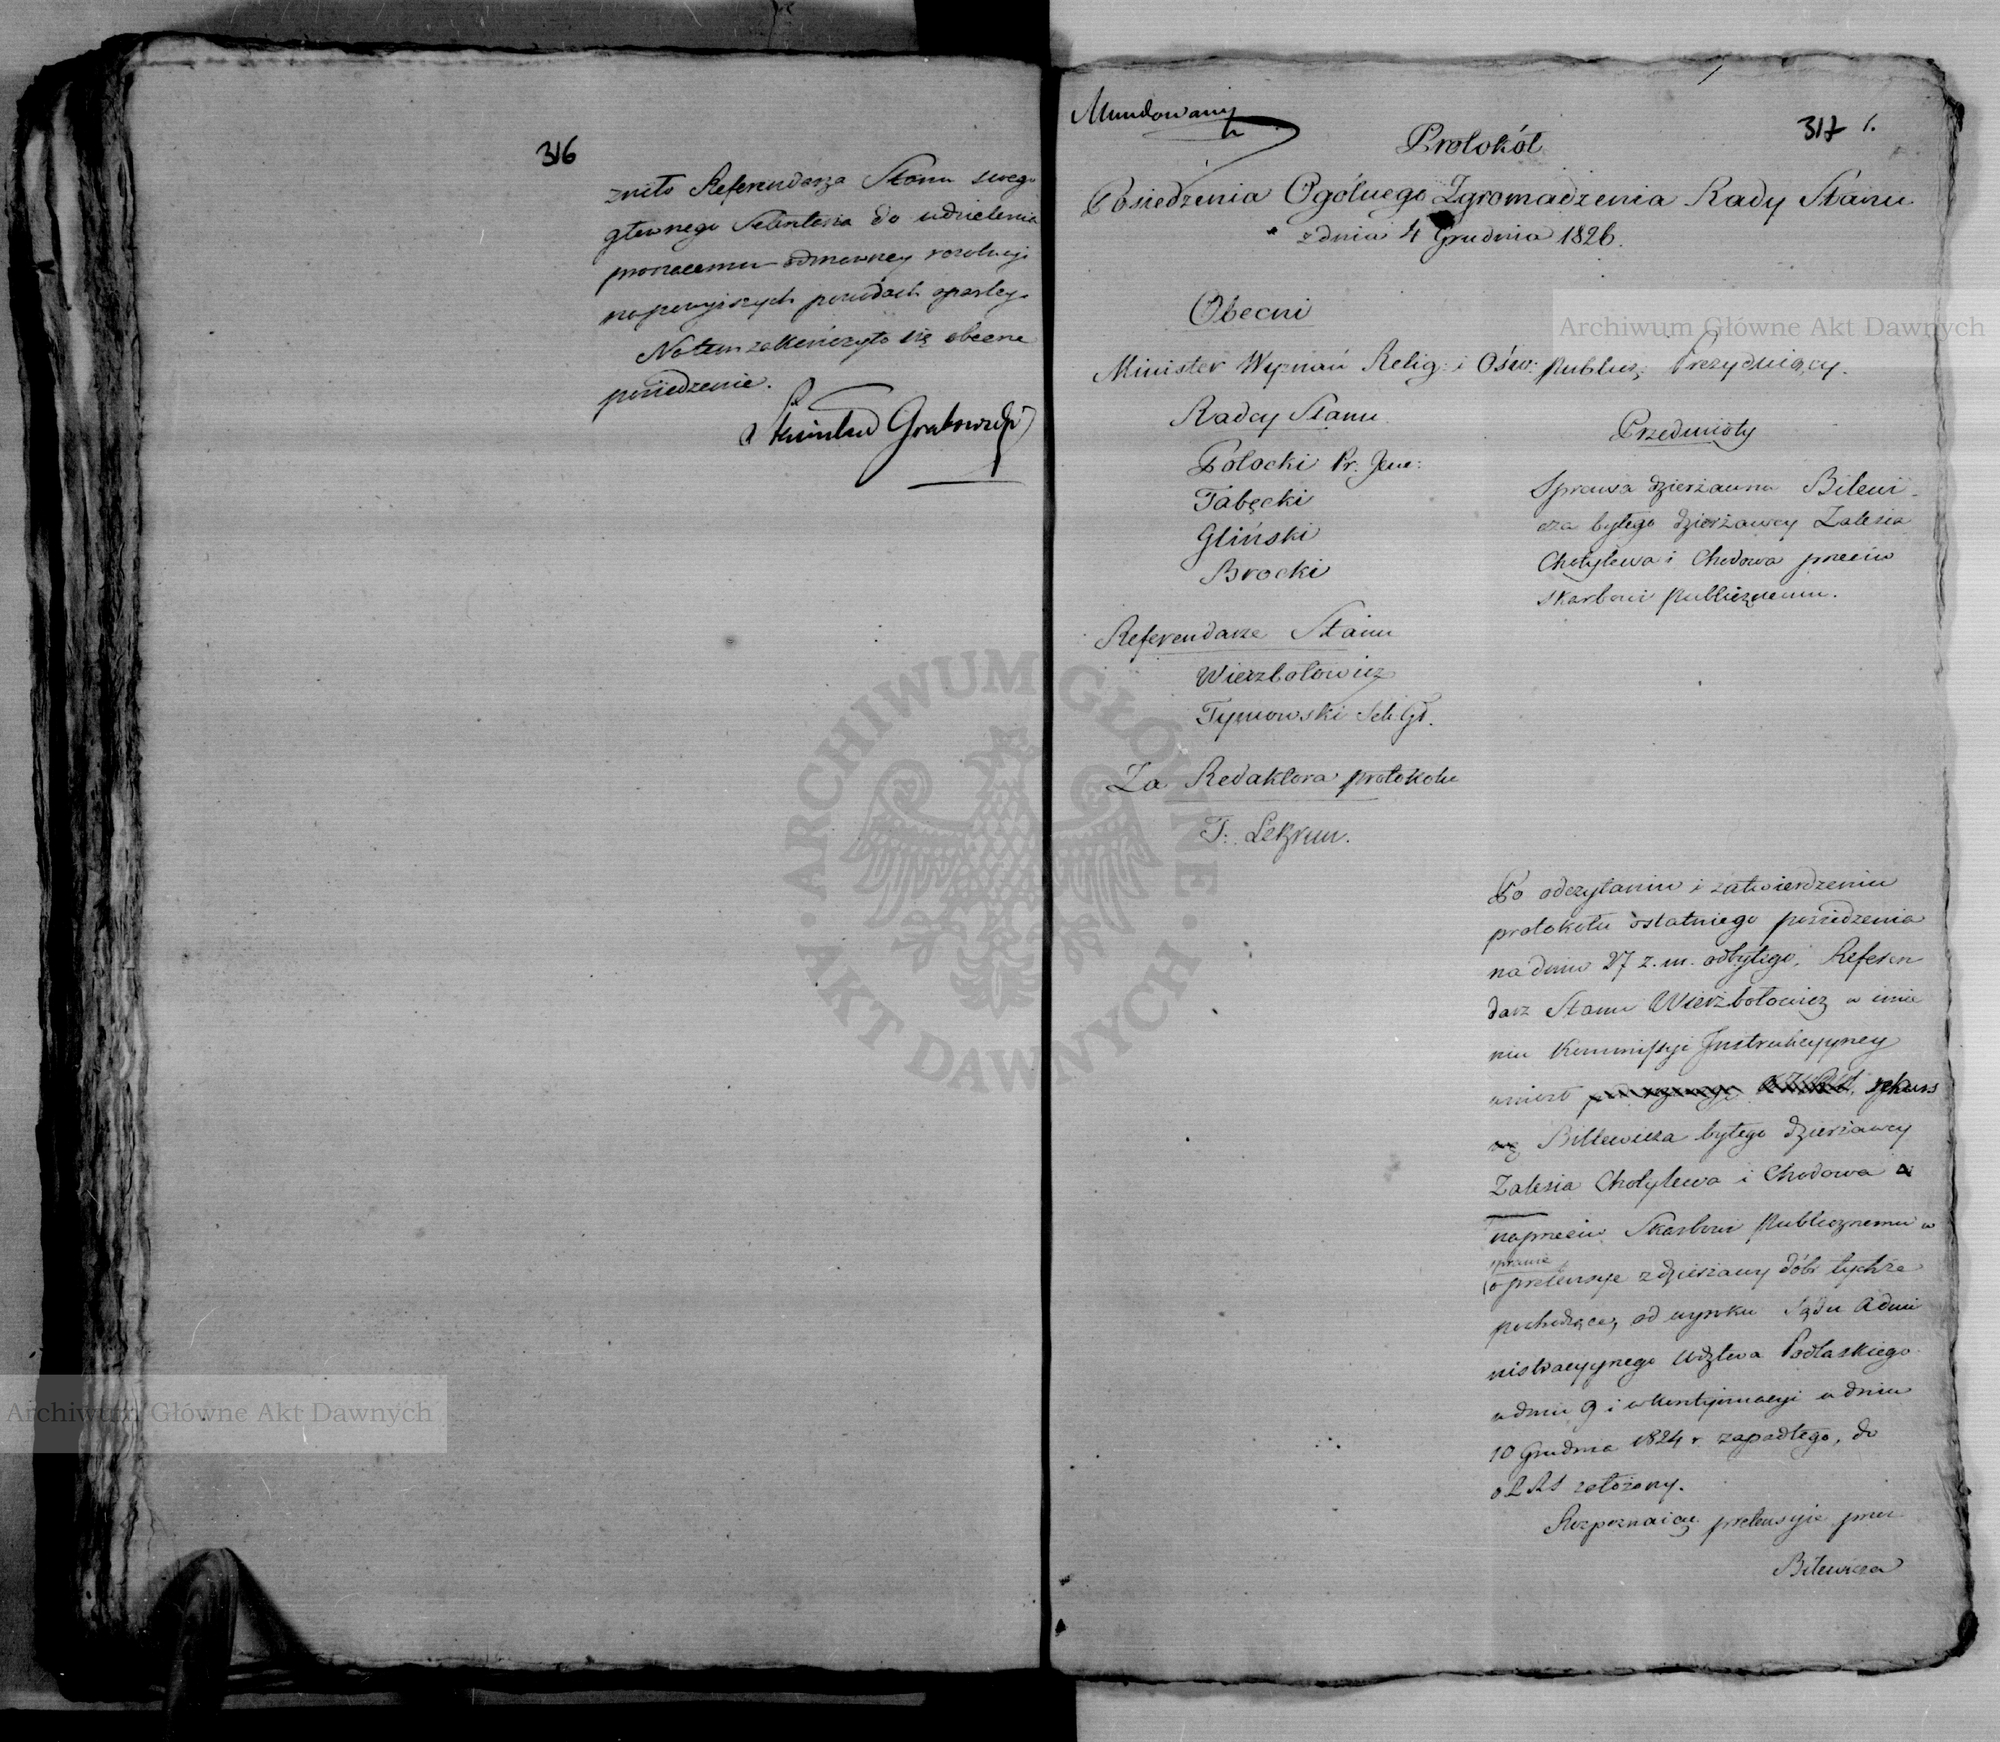 316
żniło Referendarza Stanu swego
głownego Sekretarza do udzielenia
proszacemu odmowney rezolucyi
na powyższych powodach opartey.
Na tem zakończyło się obecne
posiedzenie.
Stanisław Grabowski
Mundowany
317 1.
Protokół
Posiedzenia Ogólnego Zgromadzenia Rady Stanu
z dnia 4 Grudnia 1826.
Obecni
Minister Wyznań Relig: i Ośw: Publicz: Prezyduiący.
Radcy Stanu
Potocki Pr: Jene:
Tabęcki
Gliński
Brocki
Referendarze Stanu
Wierzbołowicz
Tymowski Sek: Gł.
Za Redaktora protokołu
T: Lekzum.
Przedmioty
Sprawa dzierżawna Bilewi-
cza byłego dzierżawcy Zalesia
Chotyłowa i Chodowa przeciw
skarbowi Publicznemu.
Po odczytaniu i zatwierdzeniu
protokołu ostatniego posiedzenia
na dniu 27 z. m. odbytego, Referen
darz Stanu Wierzbołowicz w imie
niu Kommissyi Instrukcyyney
wniósł rekurs
Billewicza byłego dzierżawcy
Zalesia Chotyłowa i Chodowa
naprzeciw Skarbowi Publicznemu w
sprawie
o pretensye z dzierżawy dóbr tychże
pochodzące, od wyroku Sądu Admi
nistracyynego Wdztwa Podlaskiego
w dniu 9 i w kontynuacyi w dniu
10 Grudnia 1824 r. zapadłego, do
RS założony.
Rozpoznaiąc pretensyie przez
Bilewicza
Archiwum Główne Akt Dawnych
Archiwum Główne Akt Dawnych
ARCHIWUM GŁÓWNE
AKT DAWNYCH